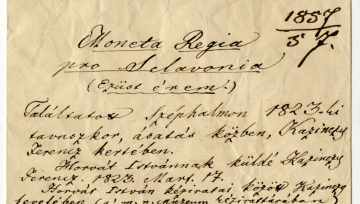 1857
5/7.
Moneta Regia
pro Sclavonia
(Ezüst érem.)
Találtatott Széphalmon 1823-ki
tavaszkor, ásatás közben, Kazinczy
Ferencz kertében.
Horvát Istvánnak küldé Kazinczy
Ferencz. 1823. Mart. 17.
Horvát István kéziratai között Kazinczy
levelében